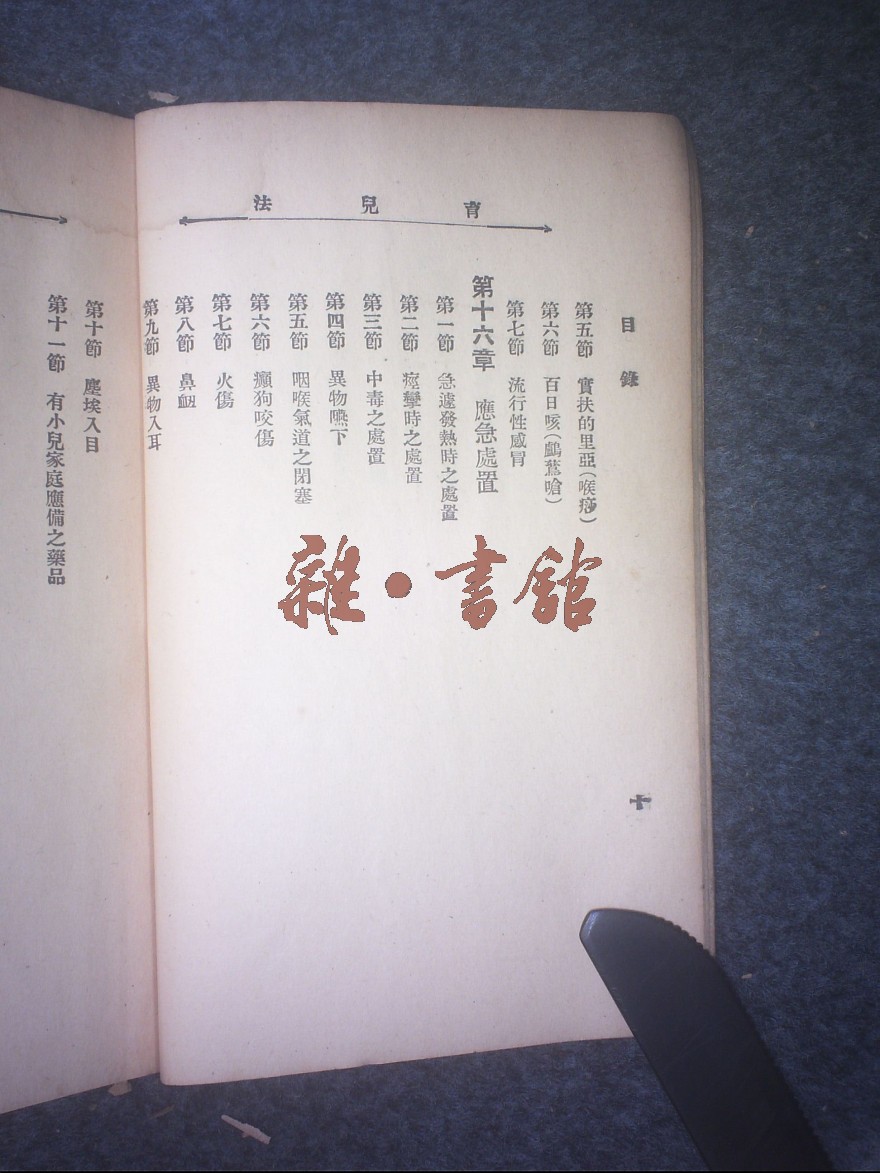 育兒法
目錄
第五節 實扶的里亞(喉痧)
第六節 百日咳(鸕鶿嗆)
第七節 流行性感冒
第十六章 應急處置
第一節 急遽發熱時之處置
第二節 痙攣時之處置
第三節 中毒之處置
第四節 異物嚥下
第五節 咽喉氣道之閉塞
第六節 癲狗咬傷
第七節 火傷
第八節 鼻衄
第九節 異物入耳
十
第十節 塵埃入目
第十一節 有小兒家庭應備之藥品
雜·書館